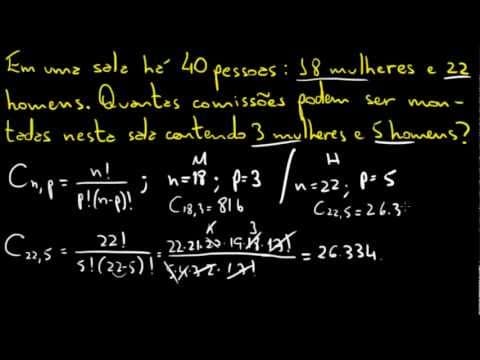 Em uma sala há 40 pessoas: 18 mulheres e 22
homens. Quantas comissões podem ser mon-
tadas nesta sala contendo 3 mulheres e 5 homens?
M H
C n,p = n! / p!(n-p)! ; n=18 ; p=3 / n=22 ; p=5
C 18,3 = 816 C 22,5 = 26.3
C 22,5 = 22! / 5!(22-5)! = 22.21.20.19.18.17! / 5.4.3.2.17! = 26.334